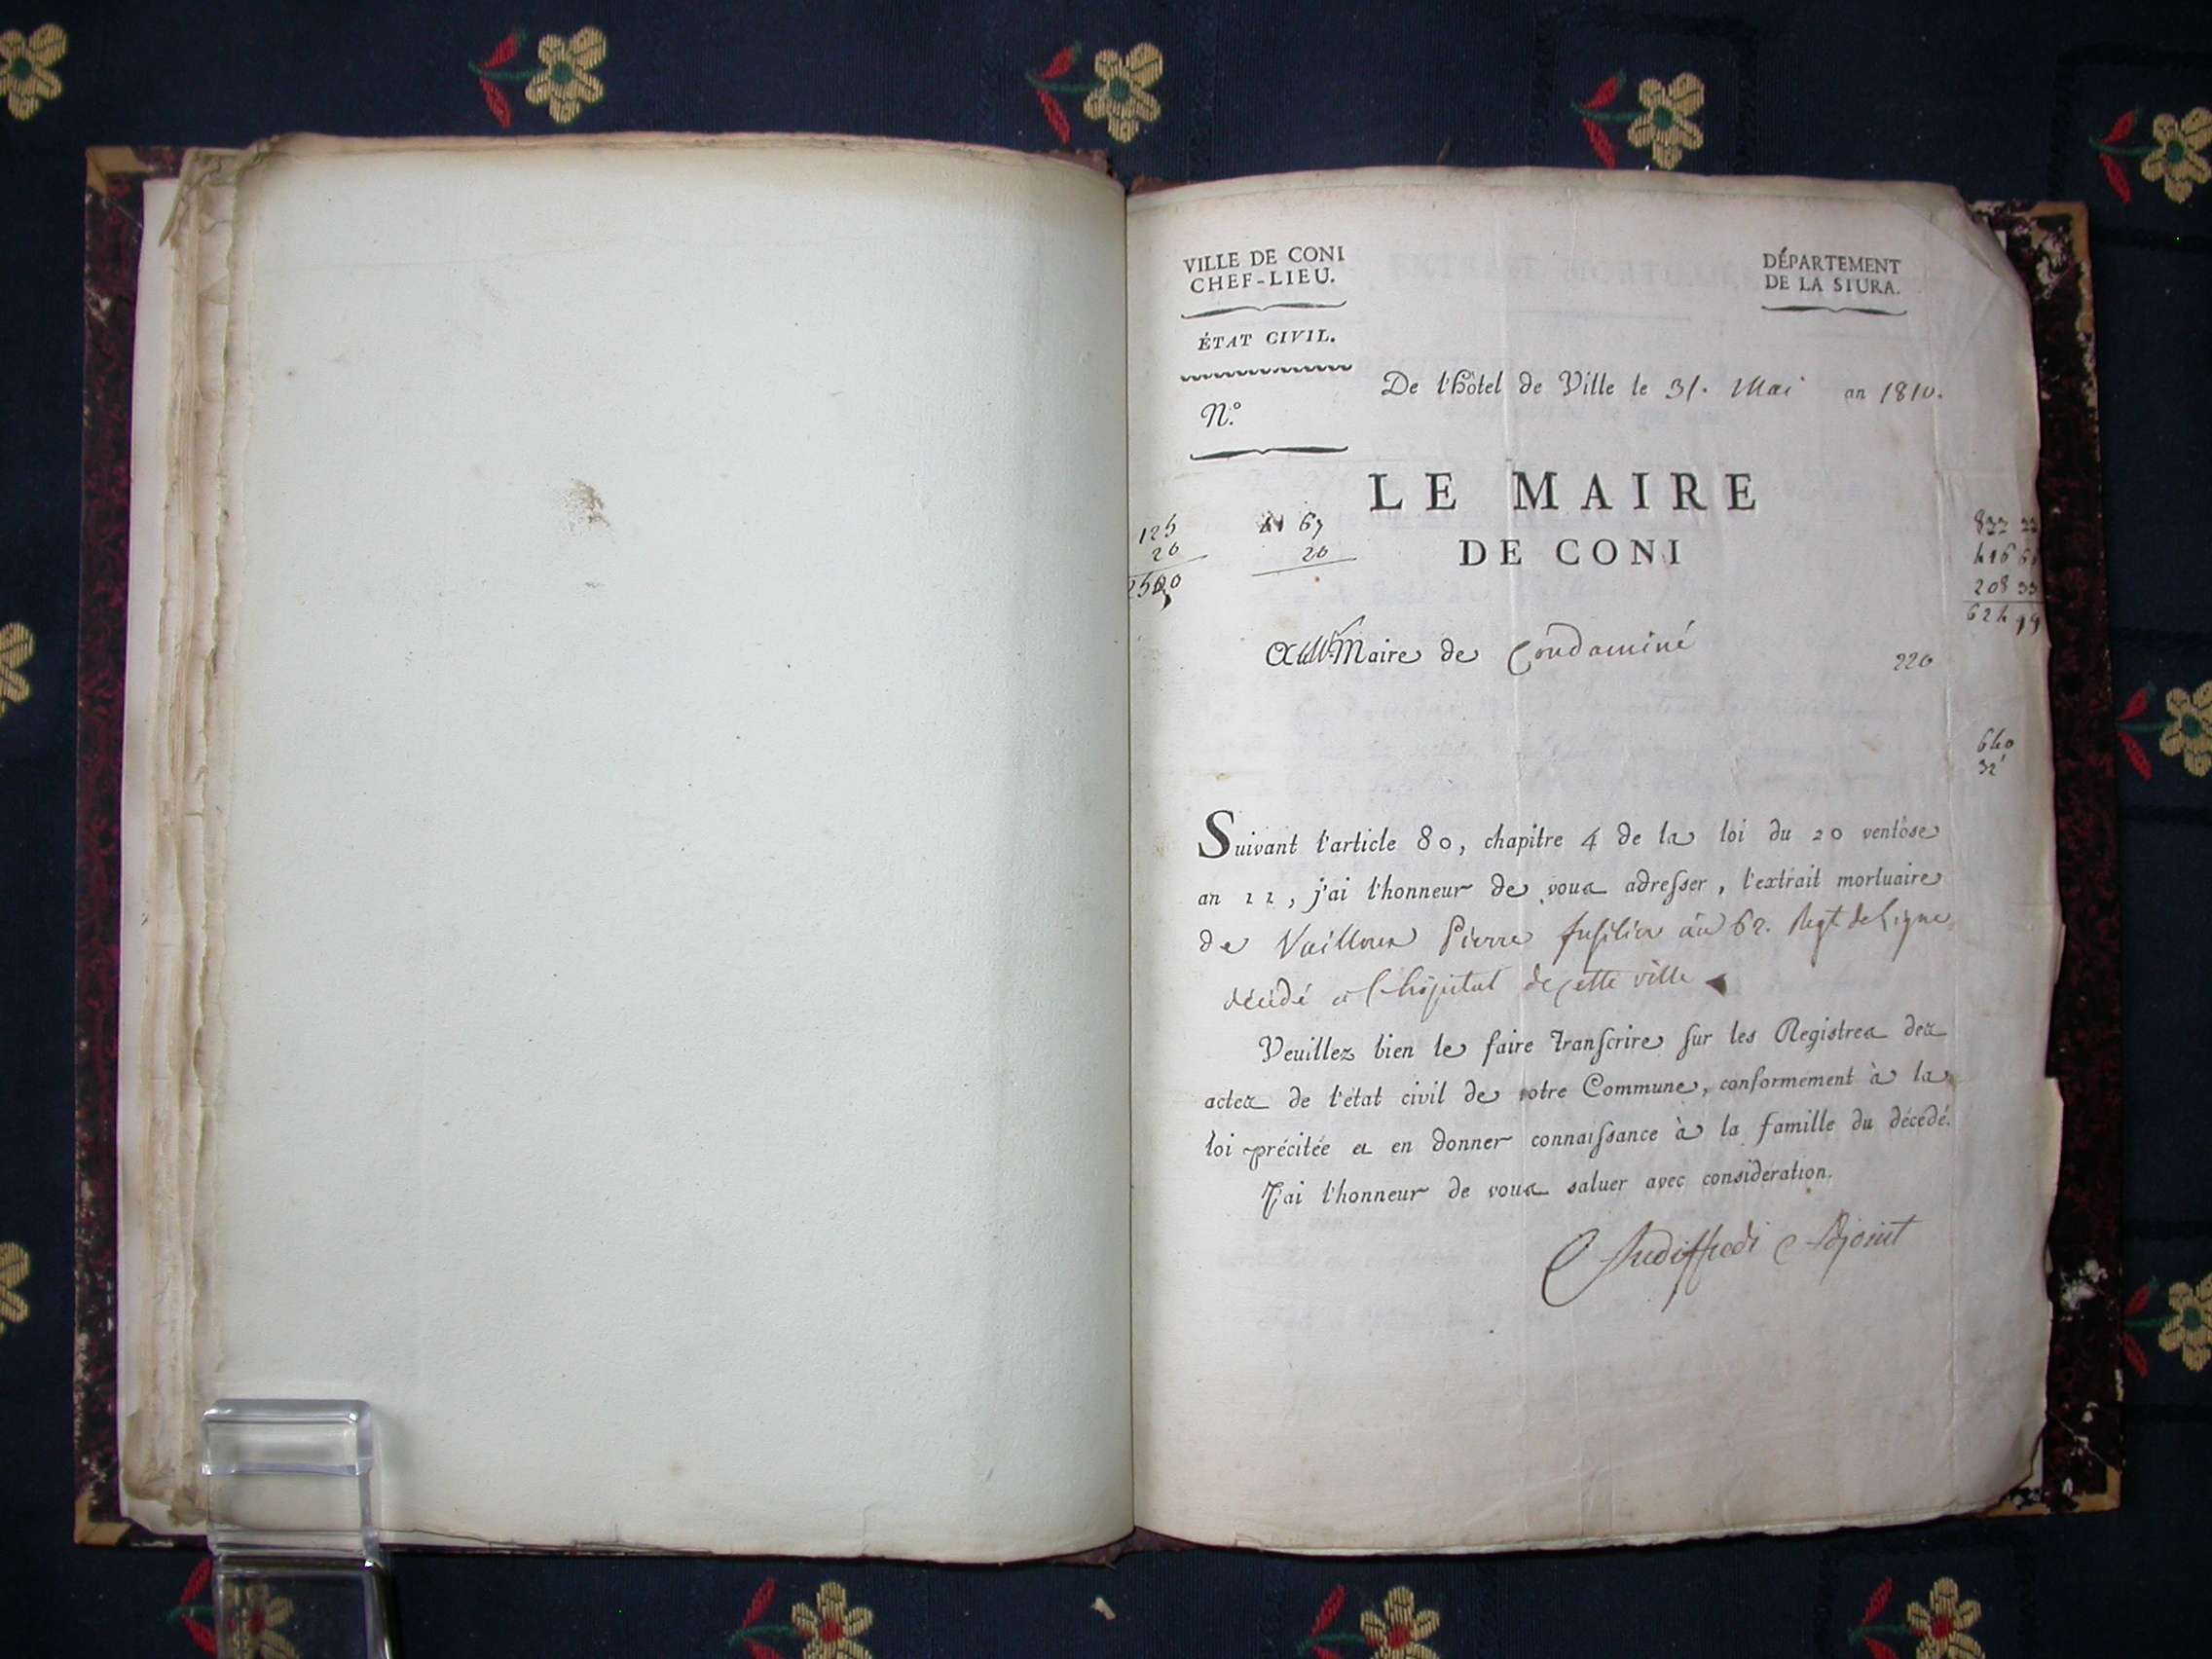 VILLE DE CONI
CHEF-LIEU.
DÉPARTEMENT
DE LA STURA.
ÉTAT CIVIL.
N.º
De l'Hôtel de Ville le 31. Mai an 1810.
LE MAIRE
DE CONI
125
20
2500
67
20
833 33
416 66
208 33
624 99
Maire de Condaminé
220
640
32
Suivant l'article 80, chapitre 4 de la loi du 20 ventôse
an 11, j'ai l'honneur de vous adresser, l'extrait mortuaire
de Pierre fusilier au 62. Regt. de Ligne
décédé à l'hôpital de cette ville
Veuillez bien le faire transcrire sur les Registres des
actes de l'état civil de votre Commune, conformément à la
loi précitée et en donner connaissance à la famille du décédé.
J'ai l'honneur de vous saluer avec considération.
Audiffredi Adjoint